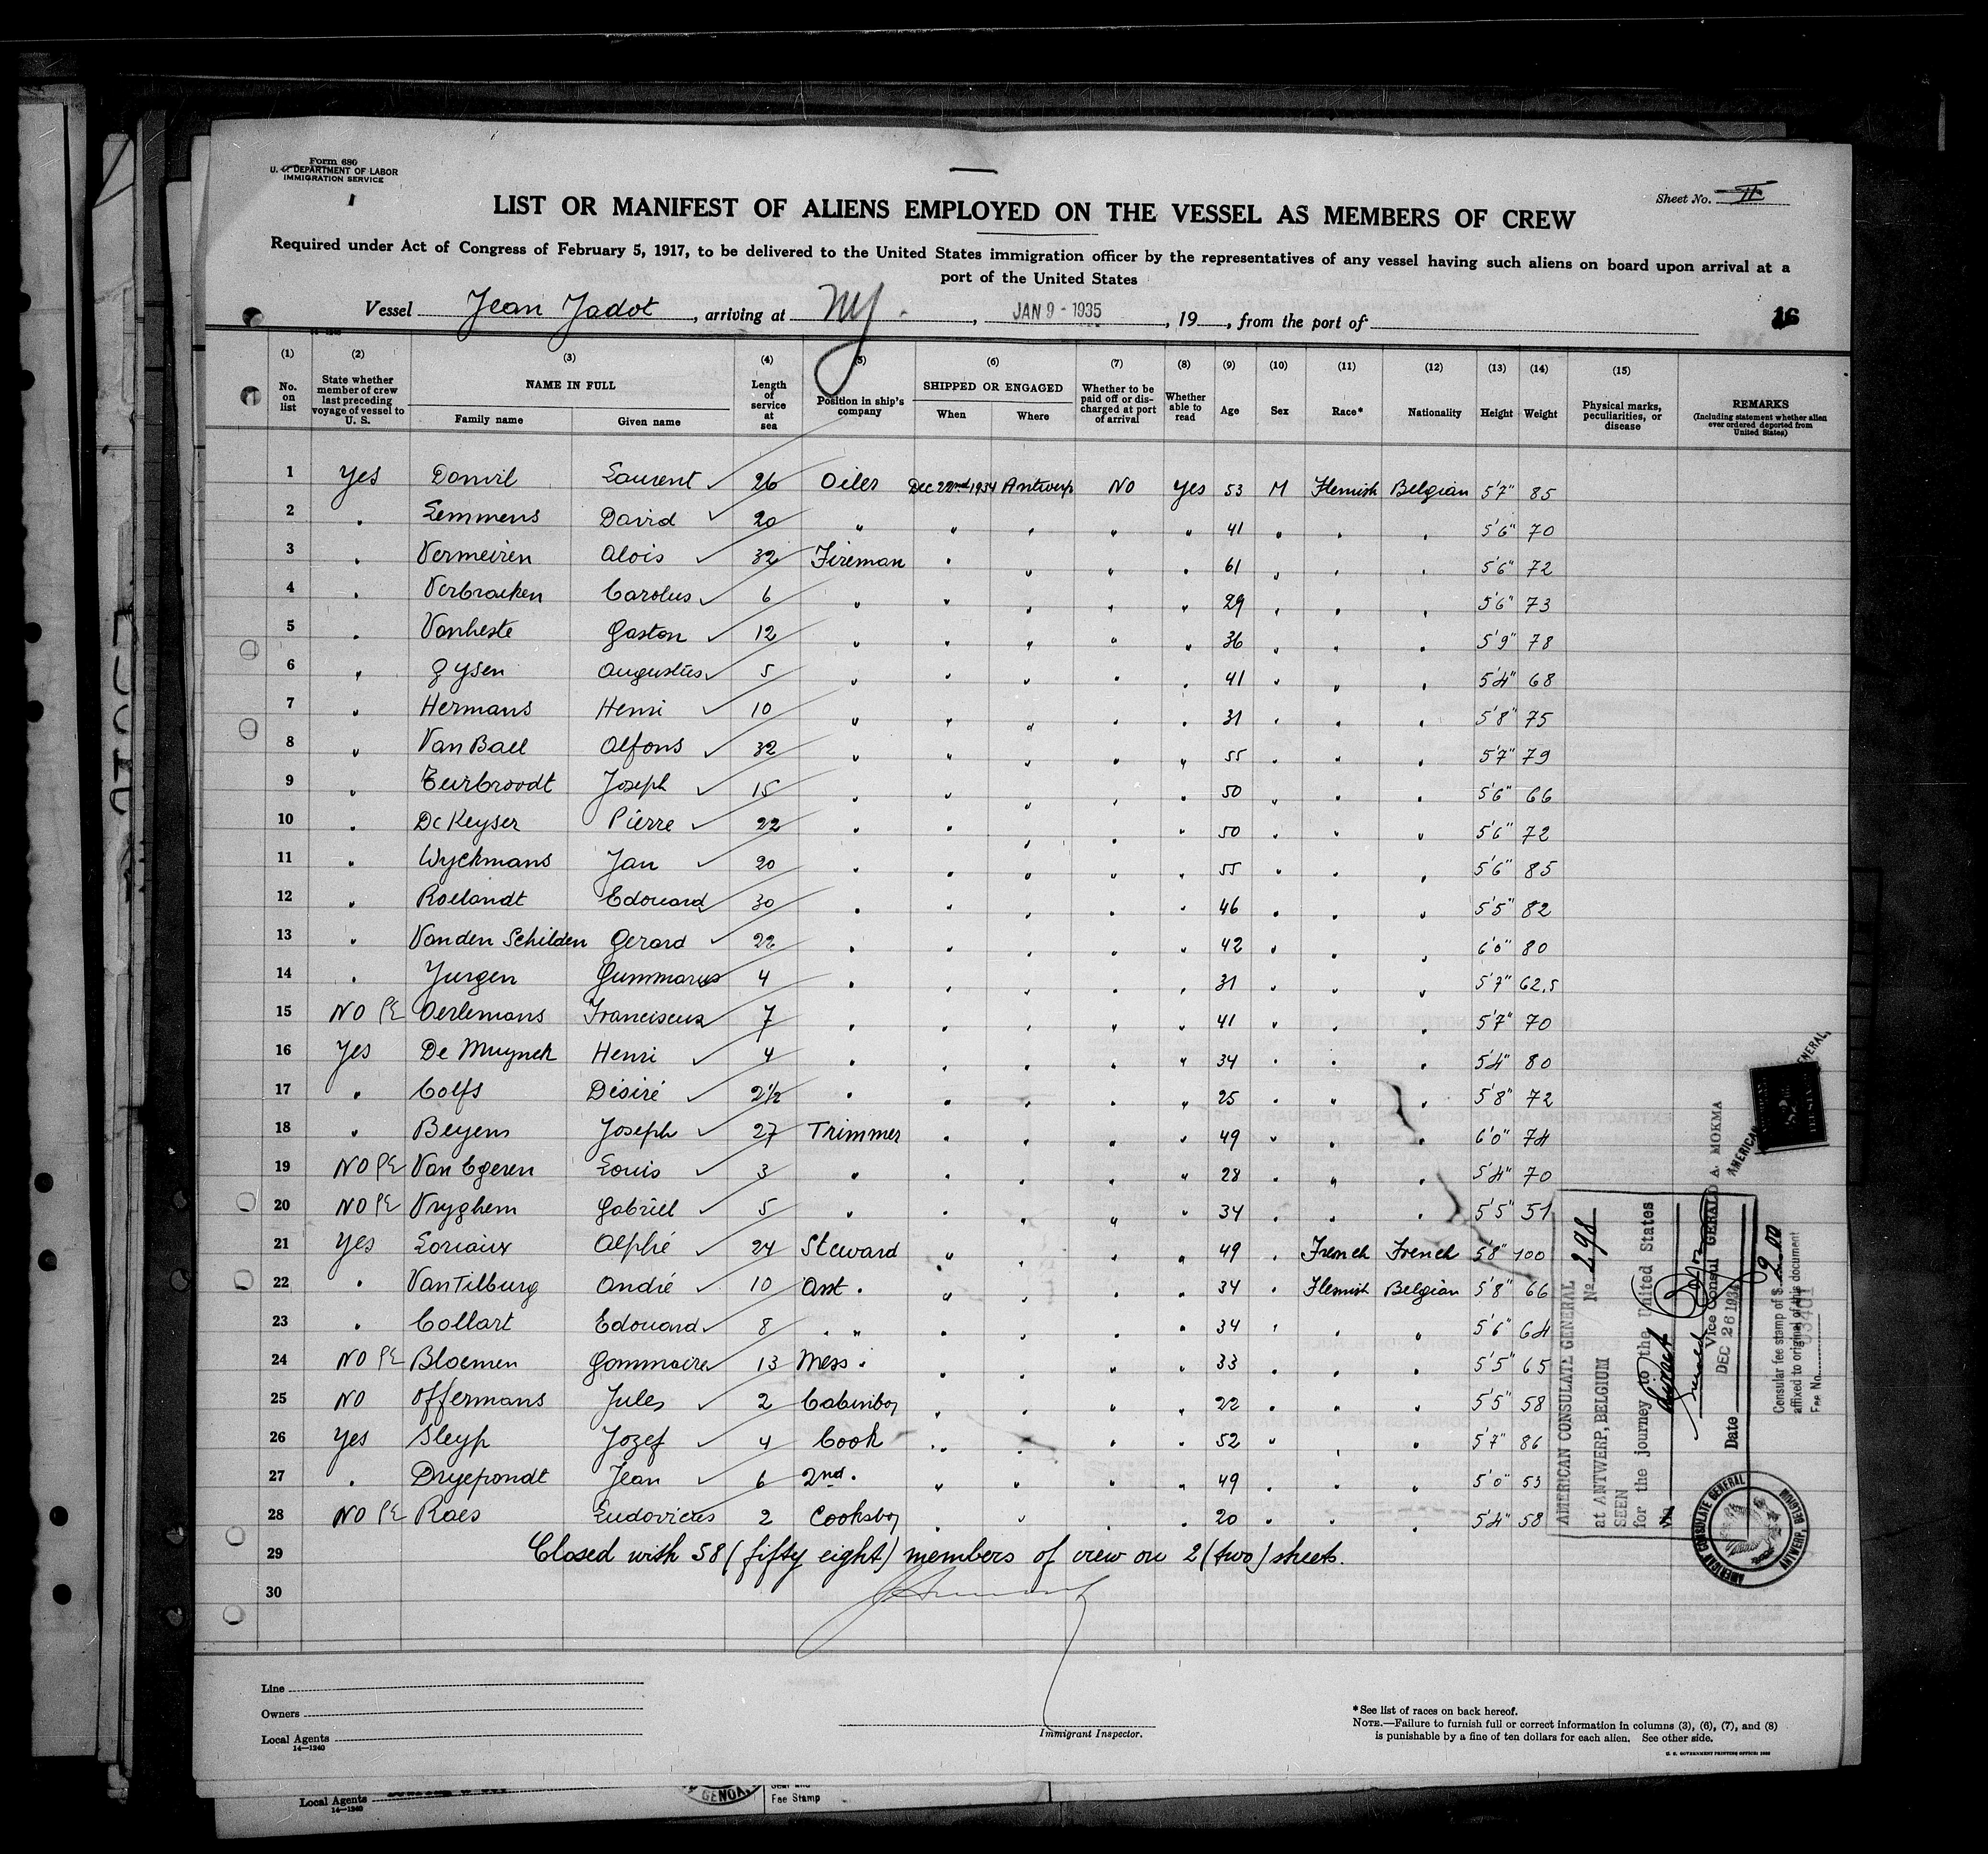 Form 680
U. S. DEPARTMENT OF LABOR
IMMIGRATION SERVICE
Sheet No. II
LIST OR MANIFEST OF ALIENS EMPLOYED ON THE VESSEL AS MEMBERS OF CREW
Required under Act of Congress of February 5, 1917, to be delivered to the United States immigration officer by the representatives of any vessel having such aliens on board upon arrival at a
port of the United States
Vessel Jean Jadot, arriving at NY., JAN 9 - 1935, 19 , from the port of
16
(1) (2) (3) (4) (5) (6) (7) (8) (9) (10) (11) (12) (13) (14) (15)
No. on list
State whether member of crew last preceding voyage of vessel to U. S.
NAME IN FULL
Family name Given name
Length of service at sea
Position in ship's company
SHIPPED OR ENGAGED
When Where
Whether to be paid off or discharged at port of arrival
Whether able to read
Age Sex Race* Nationality Height Weight
Physical marks, peculiarities, or disease
REMARKS
(Including statement whether alien ever ordered deported from United States)
1 Yes Danvil Laurent 26 Oiler Dec 22nd 1934 Antwerp No Yes 53 M Flemish Belgian 5'7" 85
2 " Lemmens David 20 " " " " " 41 " " " 5'6" 70
3 " Vermeiren Alois 32 Fireman " " " " 61 " " " 5'6" 72
4 " Verbraeken Carolus 6 " " " " " 29 " " " 5'6" 73
5 " Vanheste Gaston 12 " " " " " 36 " " " 5'9" 78
6 " Gysen Augustus 5 " " " " " 41 " " " 5'4" 68
7 " Hermans Henri 10 " " " " " 31 " " " 5'8" 75
8 " Van Bael Alfons 32 " " " " " 55 " " " 5'7" 79
9 " Teirbroodt Joseph 15 " " " " " 50 " " " 5'6" 66
10 " De Keyser Pierre 22 " " " " " 50 " " " 5'6" 72
11 " Wyckmans Jan 20 " " " " " 55 " " " 5'6" 85
12 " Roelandt Edouard 30 " " " " " 46 " " " 5'5" 82
13 " Vanden Schilden Gerard 22 " " " " " 42 " " " 6'0" 80
14 " Jurgen Gummarus 4 " " " " " 31 " " " 5'7" 62,5
15 NO PE Oerlemans Franciscus 7 " " " " " 41 " " " 5'7" 70
16 Yes De Muynck Henri 4 " " " " " 34 " " " 5'4" 80
17 " Colfs Désiré 2½ " " " " " 25 " " " 5'8" 72
18 " Beyens Joseph 27 Trimmer " " " " 49 " " " 6'0" 74
19 NO PE Van Egeren Louis 3 " " " " " 28 " " " 5'4" 70
20 NO PE Vryghem Gabriel 5 " " " " " 34 " " " 5'5" 51
21 Yes Loriaux Alphé 24 Steward " " " " 49 " French French 5'8" 100
22 " Van Tilburg André 10 Asst " " " " " 34 " Flemish Belgian 5'8" 66
23 " Collart Edouard 8 " " " " " " 34 " " " 5'6" 64
24 NO PE Bloemen Gommaire 13 Mess " " " " " 33 " " " 5'5" 65
25 NO Offermans Jules 2 Cabinboy " " " " 22 " " " 5'5" 58
26 Yes Sleyp Jozef 4 Cook " " " " 52 " " " 5'7" 86
27 " Dryepondt Jean 6 2nd " " " " " 49 " " " 5'0" 53
28 NO PE Raes Ludovicus 2 Cooksboy " " " " 20 " " " 5'4" 58
29 Closed with 58 (fifty eight) members of crew on 2 (two) sheets.
30
AMERICAN CONSULATE GENERAL
No. 298
at ANTWERP, BELGIUM
SEEN
for the journey to the United States
via
Vice Consul GERALD A. MOKMA
Date DEC 26 1934
Consular fee stamp of $ 2.00
affixed to original of this document
Fee No.
AMERICAN CONSULATE GENERAL
ANTWERP, BELGIUM
Line
Owners
Local Agents
14—1240
Immigrant Inspector.
*See list of races on back hereof.
NOTE.—Failure to furnish full or correct information in columns (3), (6), (7), and (8)
is punishable by a fine of ten dollars for each alien. See other side.
U. S. GOVERNMENT PRINTING OFFICE
Local Agents
14—1240
GENOA
Fee Stamp